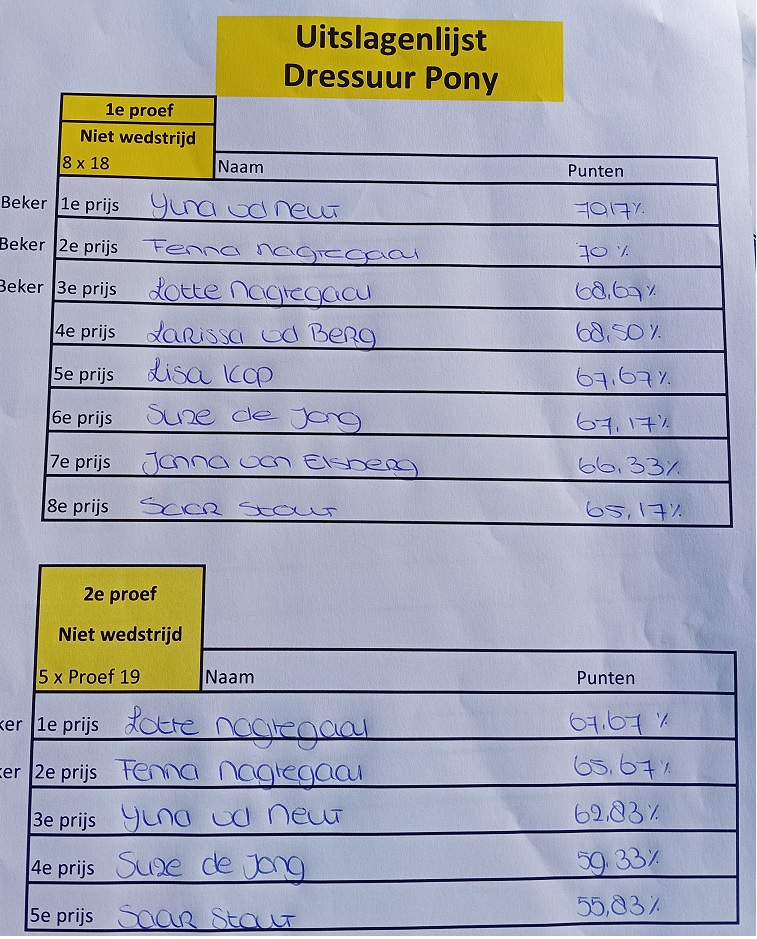 Uitslagenlijst
Dressuur Pony
1e proef
Niet wedstrijd
8 x 18 Naam Punten
Beker 1e prijs Yuna vd Neut 70,17%
Beker 2e prijs Fenna Nagtegaal 70 %
Beker 3e prijs Lotte Nagtegaal 68,67%
4e prijs Larissa vd Berg 68,50%
5e prijs Lisa Kop 67,67%
6e prijs Suze de Jong 67,17%
7e prijs Janna van Elsberg 66,33%
8e prijs Saar Stout 65,17%
2e proef
Niet wedstrijd
5 x Proef 19 Naam Punten
ker 1e prijs Lotte Nagtegaal 67,67 %
ker 2e prijs Fenna Nagtegaal 65,67%
3e prijs Yuna vd Neut 62,83%
4e prijs Suze de Jong 59,33%
5e prijs Saar Stout 55,83%